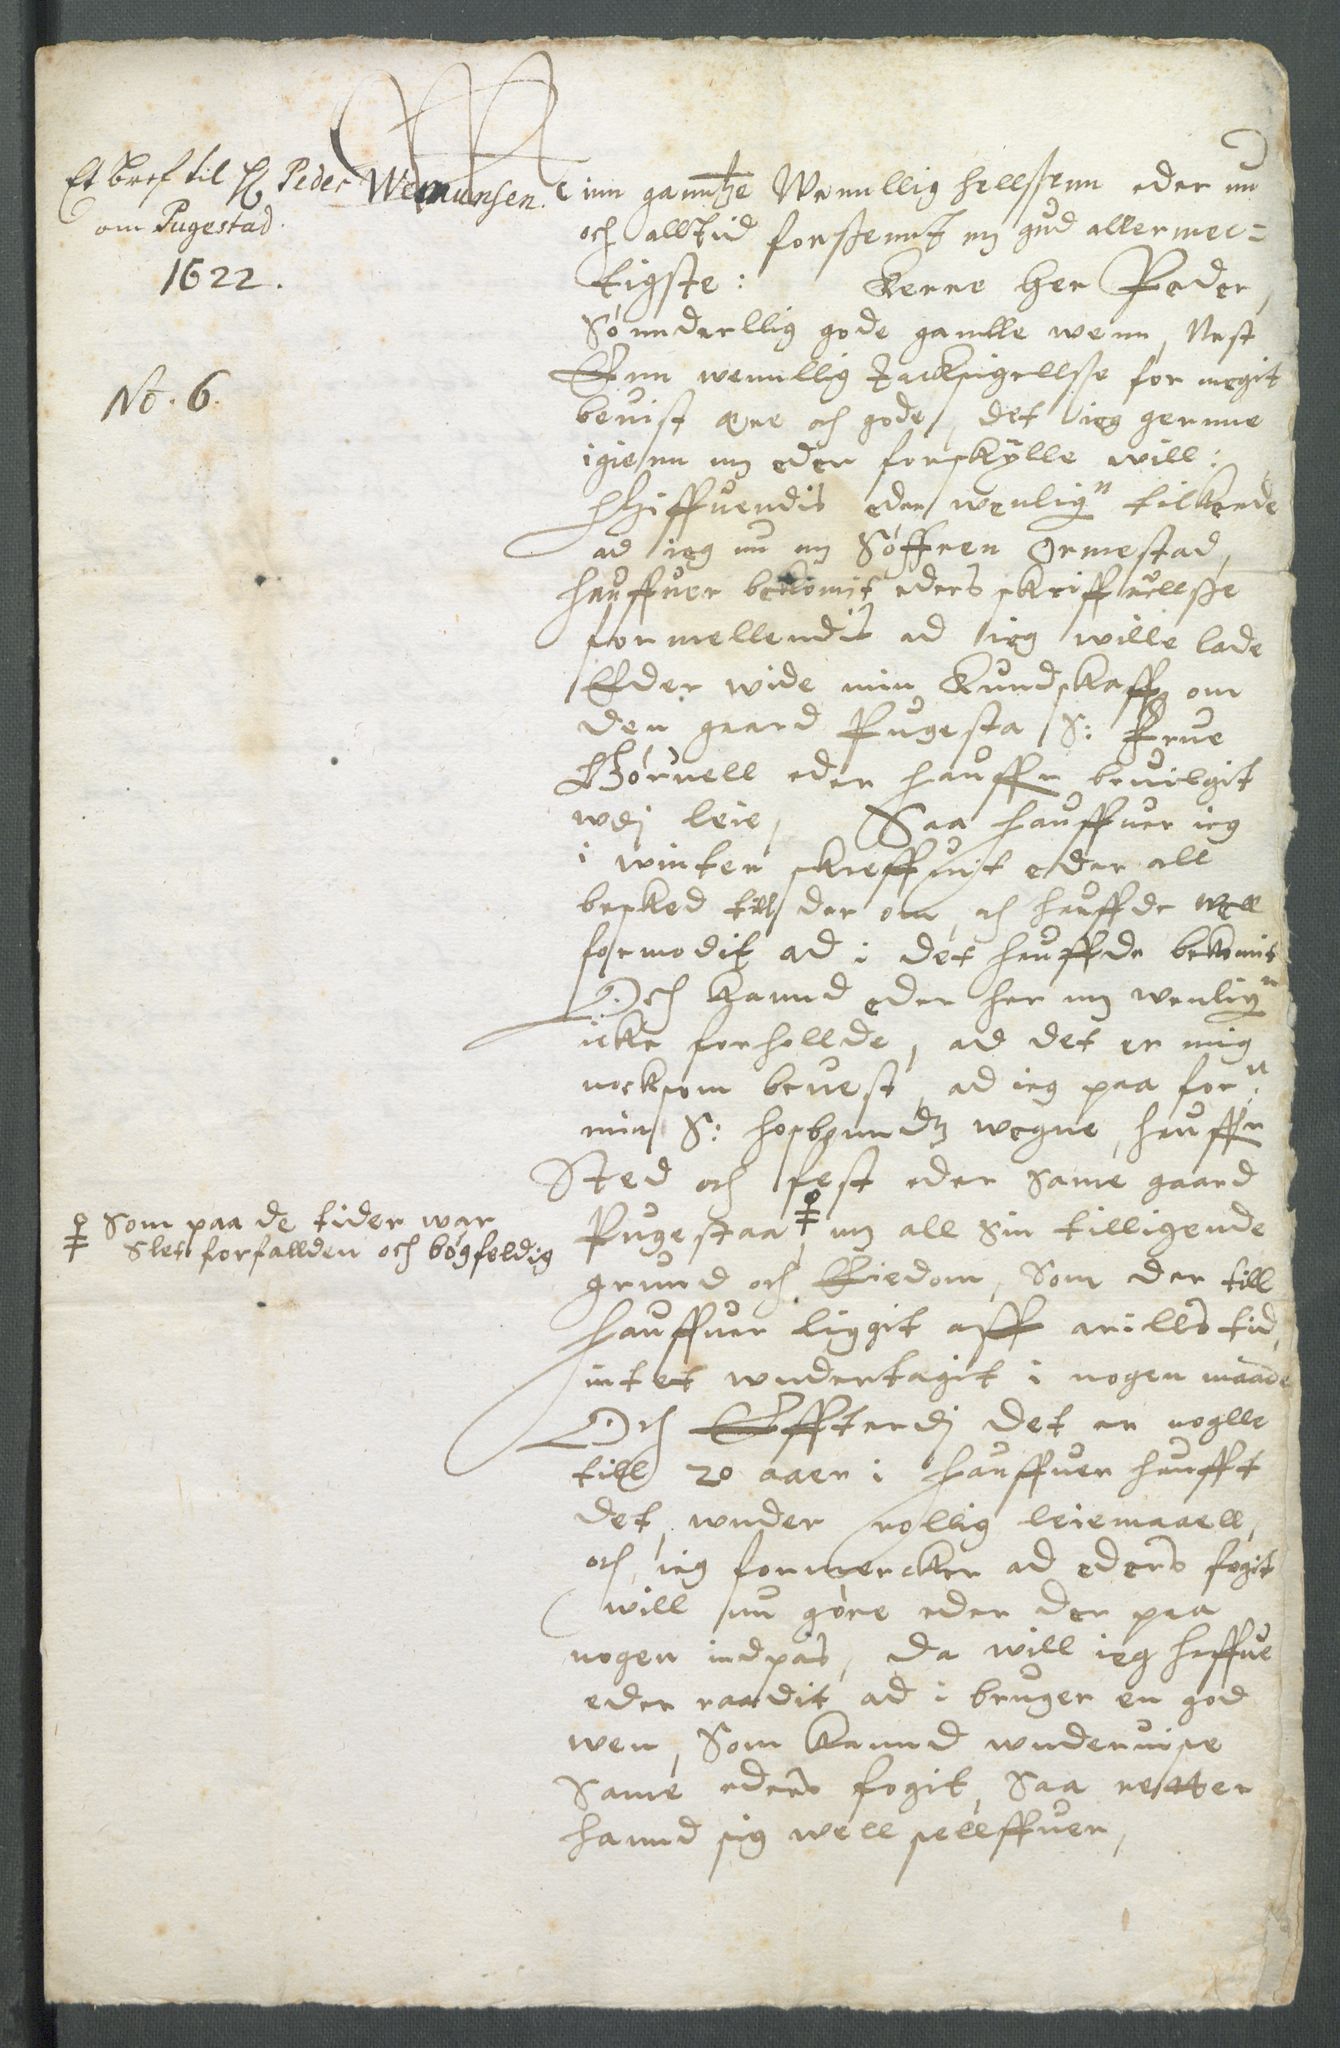 Et bref til H. Peder Wemunsen.
om Pugestad.
1622.
No. 6.
Minn ganntze Wennllig hellssenn eder nu
och alltid forssennt m gud allermec=
tigste: Kerre Her Peder,
Sønnderllig gode gamlle wenn, Nest
Enn wennllig tacksigellsse for megit
beuist ære och gode, det ieg gernne
igienn m eder forskÿlle will:
Giffuendis eder wenlign tilkende
ad ieg nu m Søffren Ormestad,
hauffuer bekomit eders skriffuellsse
formellendis ad ieg wille lade
Eder wide min Kundskaff om
den gaard Pugesta S: Frue
Gøruell eder hauffr beuilgit
wdj leie, Saa hauffuer ieg
i winter skreffuit eder all
besked till der om, och hauffde well
formodit ad i det hauffde bekomit
Och Kannd eder her m wenlign
icke forhollde, ad det er mig
nocksom beuest, ad ieg paa forn:
min S: hosbonndz wegne, hauffr
Sted och fest eder Same gaard
Pugestaa, m all Sin tilligende
grund och Eiedom, Som der till
hauffuer liggit aff arilds tid,
intet wndertagit i nogen maade
Och Effterdj det er noglle
till 20 aaer i hauffuer haufft
det wnder rollig leiemaaell,
och ieg formercker ad eders fogit
will nu gøre eder der paa
nogen indpas, da will ieg haffue
eder raadit ad i bruger en god
wen, Som Kannd wnderuise
Same eders fogit, Saa retter
hannd sig well sellffuer,
Som paa de tider war
Slet forfallden och bøgfeldig